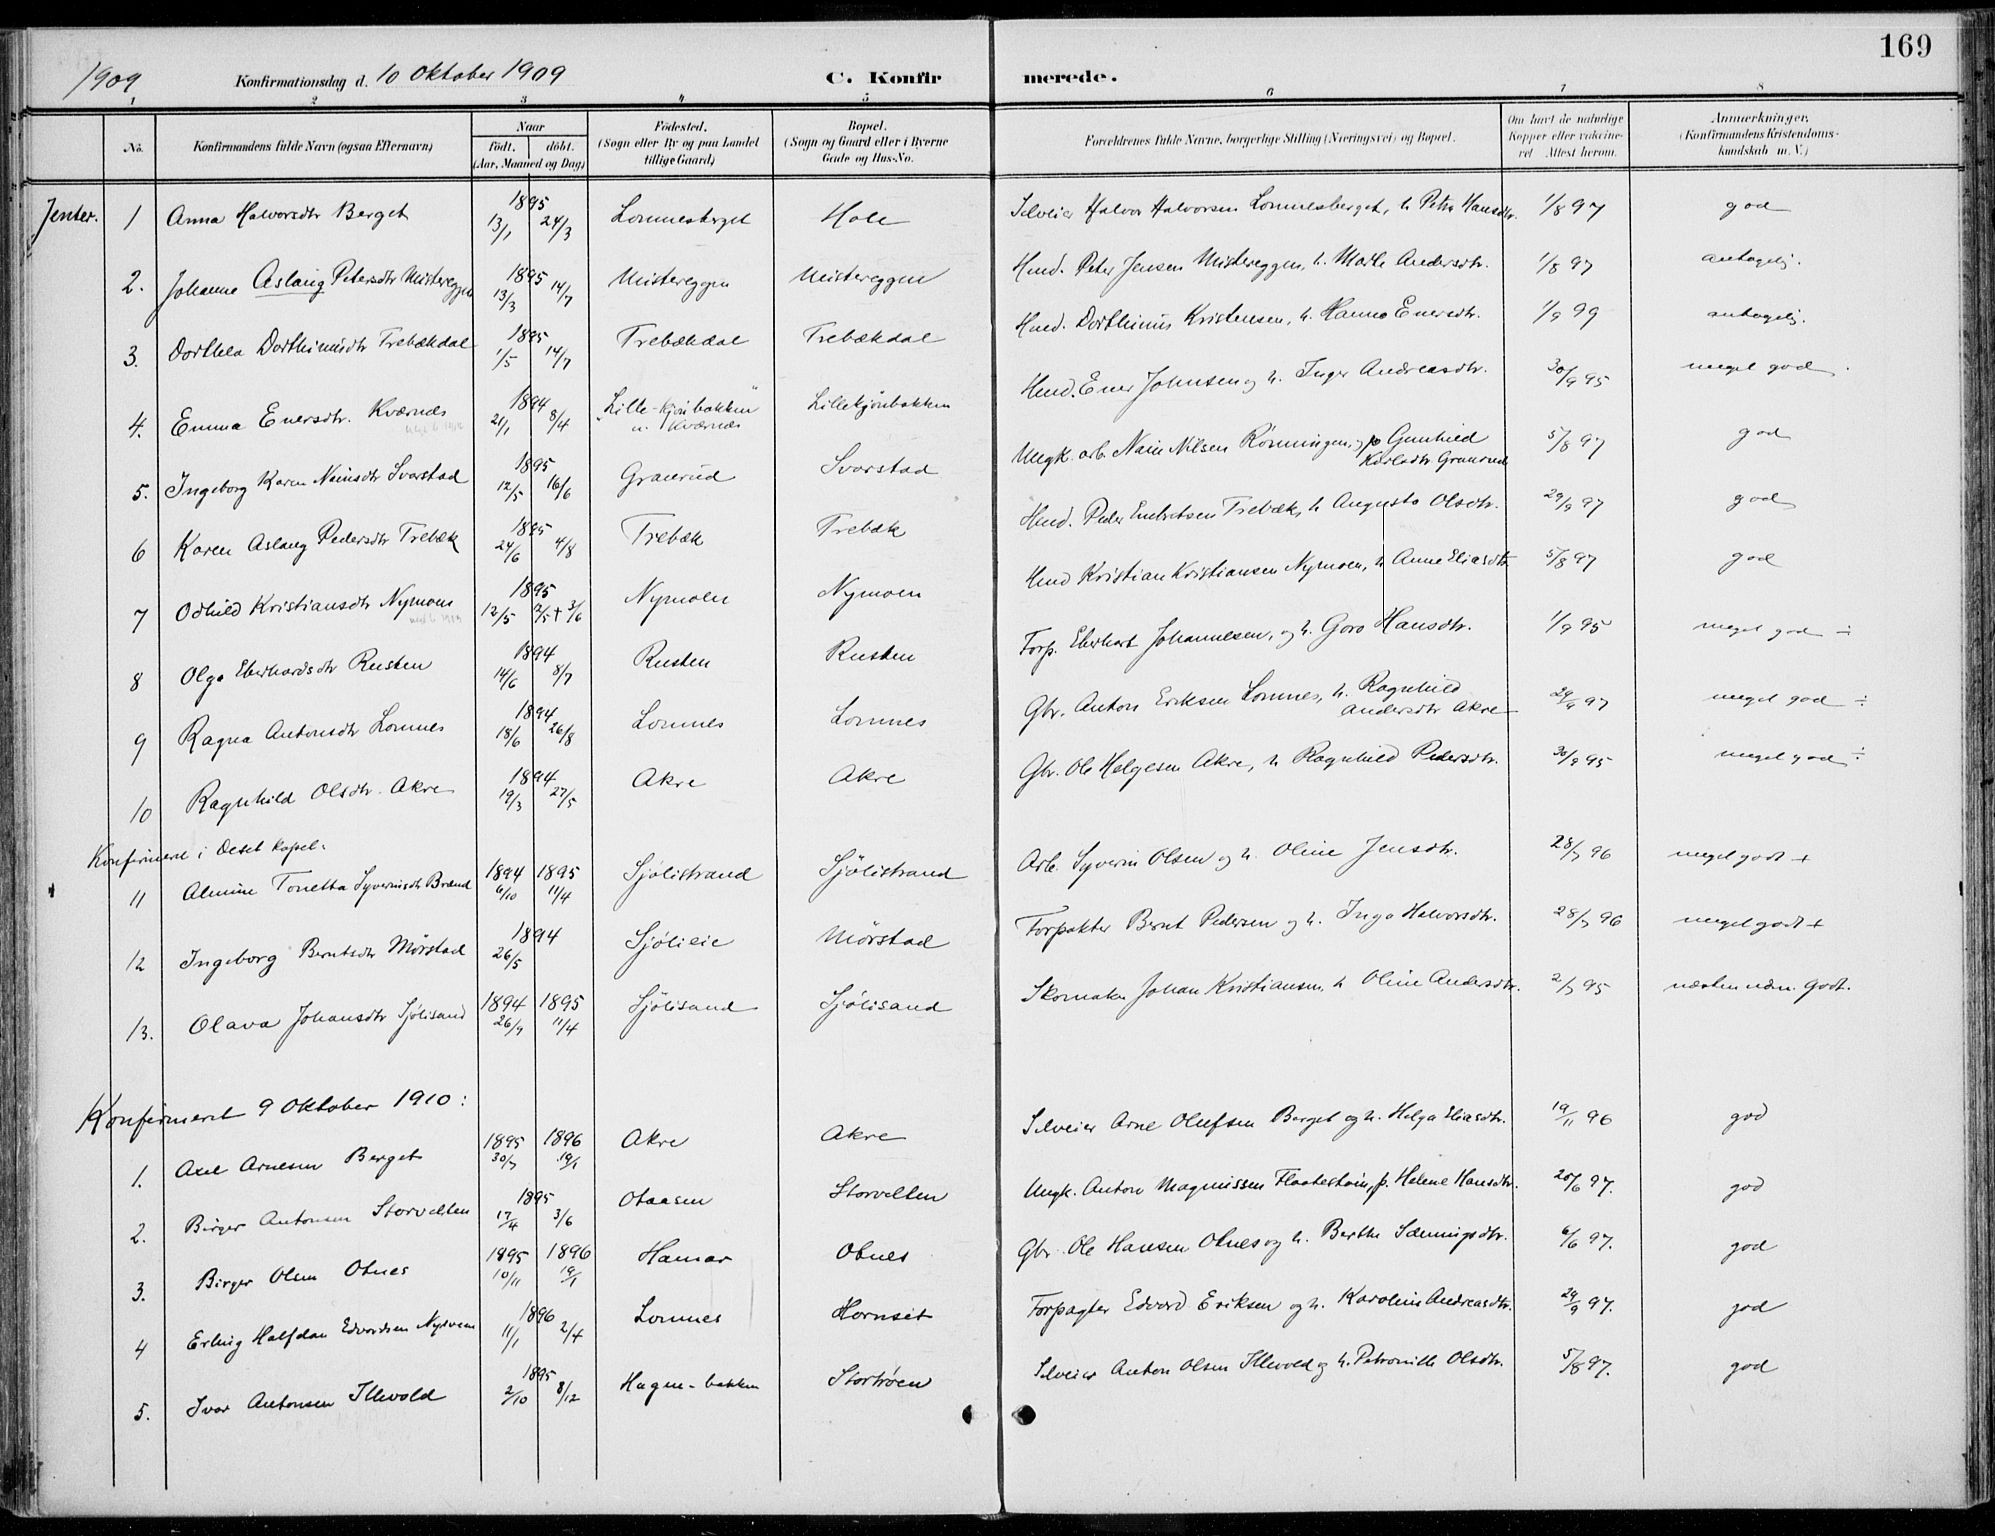 169
1909 Konfirmationsdag d. 10 Oktober 1909 C. Konfirmerede.
1 2 3 4 5 6 7 8
No. Konfirmandens fulde Navn (ogsaa Efternavn) Naar födt. döbt. (Aar, Maaned og Dag) Födested. (Sogn eller By og paa Landet tillige Gaard) Bopæl. (Sogn og Gaard eller i Byerne Gade og Hus-No. Forældrenes fulde Navne, borgerlige Stilling (Næringsvei) og Bopæl. Om havt de naturlige Kopper eller vakcineret Attest herom. Anmærkninger. (Konfirmandens Kristendomskundskab m. V.)
Jenter. 1 Anna Halvorsdtr Berget 1895 13/1 24/3 Lomnesberget Hole Selveier Halvor Halvorsen Lomnesberget, h. Petra Hansdtr. 1/8 97 god
2. Johanne Aslaug Petersdtr Mistereggen 1895 13/3 14/7 Mistereggen Mistereggen Hmd. Peter Jensen Mistereggen, h. Marte Andersdtr. 1/8 97 antagelig.
3. Dorthea Dorthinusdtr Trebækdal 1895 1/5 14/7 Trebækdal Trebækdal Hmd. Dorthinus Kristensen, h. Hanna Enersdtr. 1/9 99 antagelig.
4. Emma Enersdtr. Kværnæs 1894 21/1 8/4 Lille-kjönbakken u. Kværnæs Lillekjönbakken Hmd. Ener Johnsen og h. Inger Andreasdtr. 30/9 95 meget god.
5. Ingeborg Karen Nainsdtr Svarstad 1895 12/5 16/6 Granrud Svarstad Ungk. arb. Nain Nilsen Rönningen, p Gunhild Karlsdtr Granrud 5/8 97 god
6 Karen Aslaug Pedersdtr Trebæk 1895 24/6 4/8 Trebæk Trebæk Hmd. Peder Embretsen Trebæk, h Augusta Olsdtr. 29/9 97 god
7 Odhild Kristiansdtr Nymoen 1895 12/5 12/5 + 3/6 Nymoen Nymoen Hmd Kristian Kristiansen Nymoen, h Anne Eliasdtr 5/8 97 god
8 Olga Eberhardsdtr Rusten 1894 14/6 8/7 Rusten Rusten Forp. Eberhart Johannesen, og h. Goro Hansdtr. 1/9 95 meget god ÷
9 Ragna Antonsdtr Lomnes 1894 18/6 26/8 Lomnes Lomnes Gbr. Anton Eriksen Lomnes, h. Ragnhild Andersdtr Akre 29/9 97 meget god ÷
10 Ragnhild Olsdtr. Akre 1894 19/3 27/5 Akre Akre Gbr. Ole Helgesen Akre, h Ragnhild Pedersdtr. 30/9 95 meget god ÷
Konfirmeret i Deset kapel:
11 Almine Tonetta Syverinsdtr Brænd 1894 6/10 1895 11/4 Sjölistrand Sjölistrand Arb. Syverin Olsen og h. Oline Jensdtr. 28/7 96 meget godt +
12 Ingeborg Berntsdtr Mörstad 1894 26/5 Sjölieie Mörstad Forpakter Bernt Pedersen og h. Inga Halvorsdtr. 28/7 96 meget godt +
13. Olava Johansdtr Sjölisand 1894 26/7 1895 11/4 Sjölisand Sjölisand Skomaker Johan Kristiansen, h Oline Andersdtr. 2/7 95 næsten udm. godt.
Konfirmeret 9 Oktober 1910:
1. Axel Arnesen Berget 1895 30/7 1896 19/1 Akre Akre Selveier Arne Olufsen Berget og h. Helga Eliasdtr. 19/11 96 god
2. Birger Antonsen Storvelten 1895 17/4 3/6 Otaasen Storvelten Ungk. Anton Magnussen Flaatestöin, p. Helene Hansdtr. 20/6 97. god
3. Birger Olsen Otnes 1895 10/11 1896 19/1 Hamar Otnes Gbr. Ole Hansen Otnes og h. Berthe Sæmingsdtr. 6/6 97. god
4 Erling Halfdan Edvardsen Nysveen 1896 11/1 2/4 Lomnes Hornset Forpagter Edvard Eriksen og h. Karoline Andreasdtr. 29/9 97. god
5. Ivar Antonsen Illevold 1895 2/10 8/12 Hagen-bakken Stortröen Selveier Anton Olsen Illevold og h. Petronille Olsdtr. 5/8 97. god